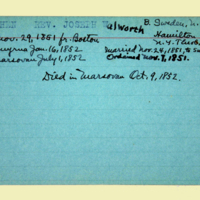 REV. JOSHEN Walworth B. Sweden, N.
Hamilton
N.Y. Theol.
Nov. 29, 1851 fr. Boston
Smyrna Jan. 16, 1852 Married Nov. 24, 1851, to
Marsovan July 1, 1852 Ordained Nov. 7, 1851.
Died in Marsovan Oct. 9, 1852.